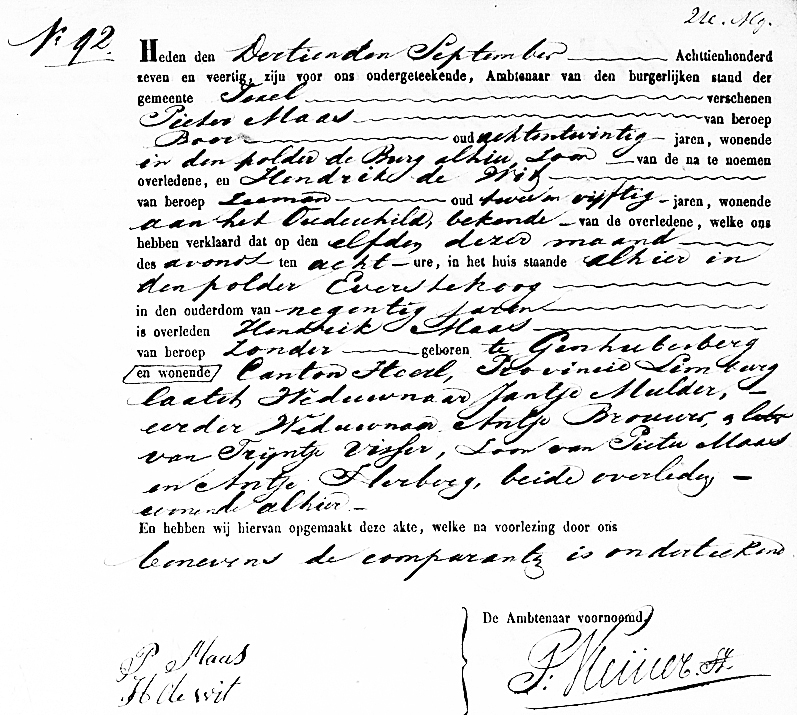 No 92.
Heden den Dertienden September Achttienhonderd
zeven en veertig, zijn voor ons ondergeteekende, Ambtenaar van den burgerlijken stand der
gemeente Texel verschenen
Pieter Maas van beroep
Boer oud achtentwintig jaren, wonende
in den polder de Burg alhier, Zoon van de na te noemen
overledene, en Hendrik de Wit
van beroep Zeeman oud twee en vijftig jaren, wonende
aan het Oudeschild, bekende van de overledene, welke ons
hebben verklaard dat op den elfden dezer maand
des avonds ten acht ure, in het huis staande alhier in
den polder Everstekoog
in den ouderdom van negentig jaren
is overleden Hendrik Maas
van beroep Zonder geboren te
en wonende Canton Heerl, Provincie Limburg
laatst Weduwnaar Jantje Mulder,
eerder Weduwnaar Antje Brouwer,
van Trijntje Visser, Zoon van Pieter Maas
en Antje Herberg, beide overleden
wonende alhier
En hebben wij hiervan opgemaakt deze akte, welke na voorlezing door ons
benevens de comparanten is onderteekend
De Ambtenaar voornoemd,
P Maas
H de Wit